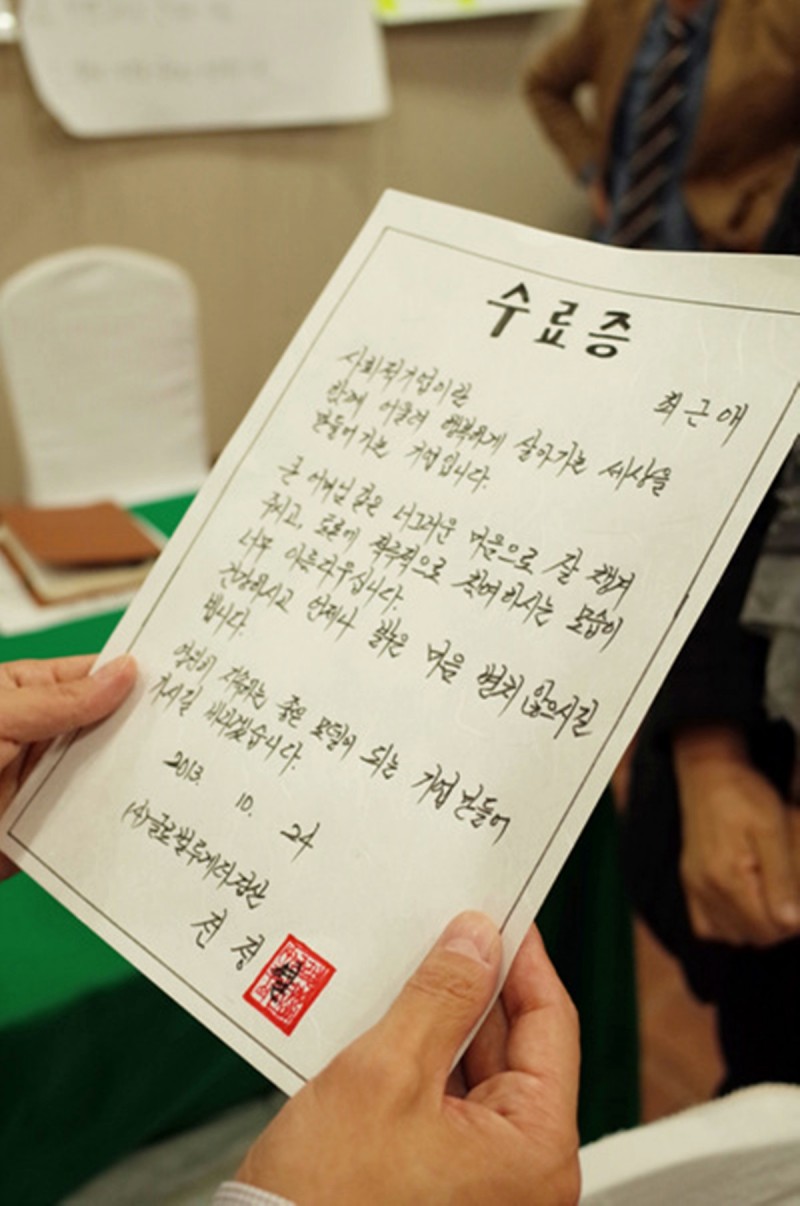 수료증
최근애
사회적기업이란
함께 어울려 행복하게 살아가는 세상을
만들어가는 기업입니다.
큰 어머님 같은 너그러운 마음으로 잘 챙겨
주시고, 토론에 적극적으로 참여하시는 모습이
너무 아름다우십니다.
건강하시고 언제나 밝은 마음 변치 않으시길
빕니다.
영원히 지속되는 좋은 모델이 되는 기업 만들어
가시길 바라겠습니다.
2013. 10. 24
(사)글로벌투게더경산
전 정